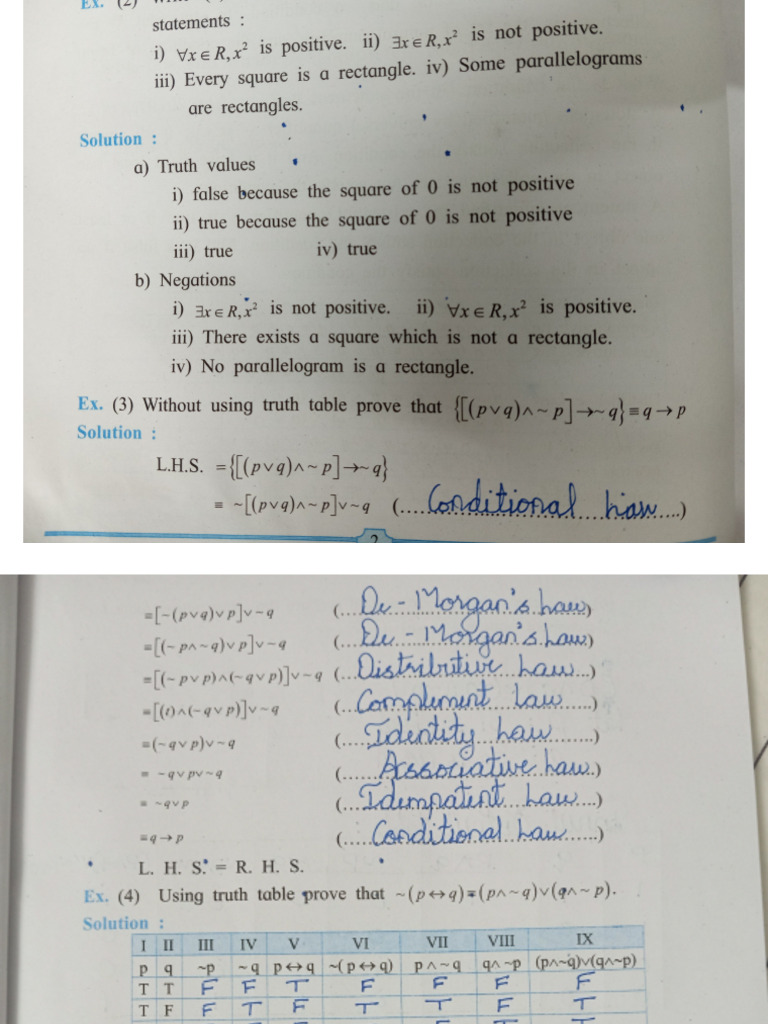 Ex. (2)
statements :
i) ∀x ∈ R, x² is positive. ii) ∃x ∈ R, x² is not positive.
iii) Every square is a rectangle. iv) Some parallelograms
are rectangles.
Solution :
a) Truth values
i) false because the square of 0 is not positive
ii) true because the square of 0 is not positive
iii) true iv) true
b) Negations
i) ∃x ∈ R, x² is not positive. ii) ∀x ∈ R, x² is positive.
iii) There exists a square which is not a rectangle.
iv) No parallelogram is a rectangle.
Ex. (3) Without using truth table prove that {[(p∨q)∧~p]→~q}≡q→p
Solution :
L.H.S. ={[(p∨q)∧~p]→~q}
≡ ~[(p∨q)∧~p]∨~q (....Conditional Law.....)
2
≡[~(p∨q)∨p]∨~q (...De-Morgan's Law)
≡[(~p∧~q)∨p]∨~q (...De-Morgan's Law)
≡[(~p∨p)∧(~q∨p)]∨~q (...Distributive Law...)
≡[(t)∧(~q∨p)]∨~q (...Complement Law......)
≡(~q∨p)∨~q (.....Identity Law........)
≡ ~q∨p∨~q (......Associative Law.)
≡ ~q∨p (...Idempatent Law....)
≡q→p (.....Conditional Law......)
L. H. S. = R. H. S.
Ex. (4) Using truth table prove that ~(p↔q)≡(p∧~q)∨(q∧~p).
Solution :
I II III IV V VI VII VIII IX
p q ~p ~q p↔q ~(p↔q) p∧~q q∧~p (p∧~q)∨(q∧~p)
T T F F T F F F F
T F F T F T T F T